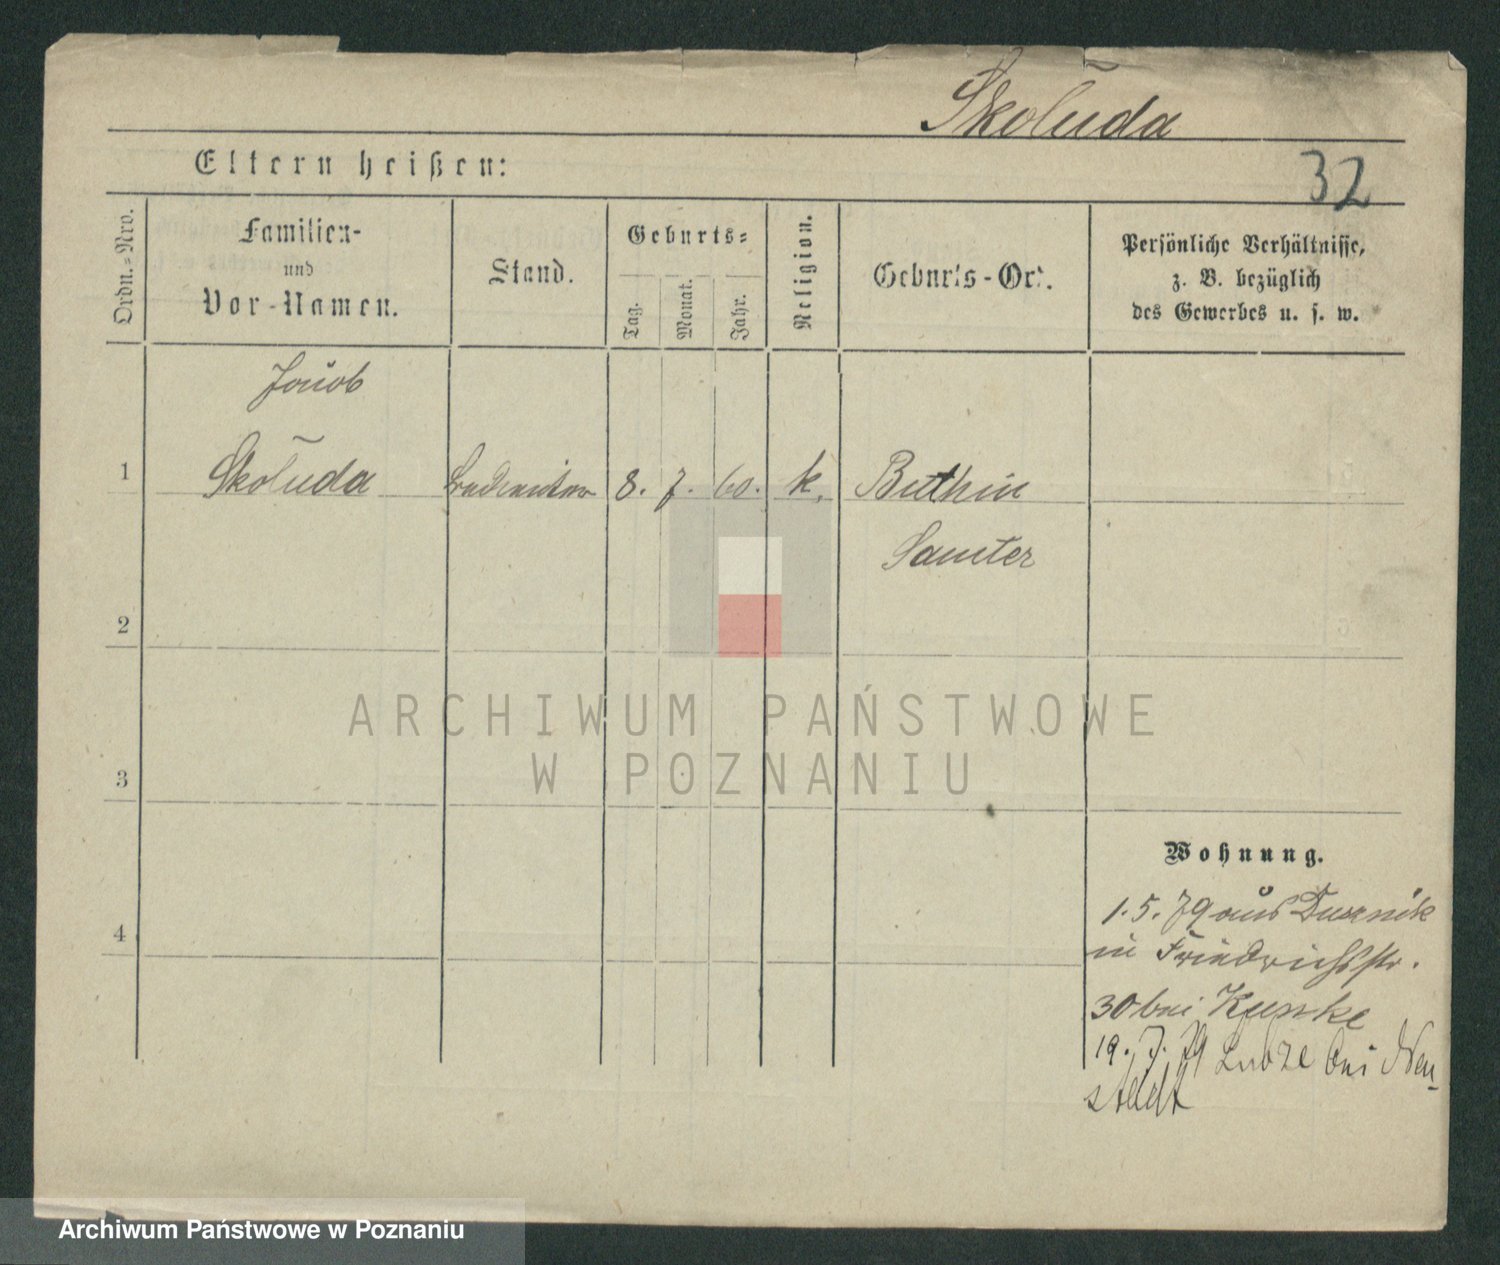 Skoluda
32
Eltern heißen:
Ordn.=Nro.
Familien-
und
Vor-Namen.
Stand.
Geburts=
Tag.
Monat.
Jahr.
Religion.
Geburts-Ort.
Persönliche Verhältnisse,
z. B. bezüglich
des Gewerbes u. s. w.
Jacob
1 Skoluda 8. 7. 60. k. Buthin
Samter
2
3
4
ARCHIWUM PAŃSTWOWE
W POZNANIU
Wohnung.
1. 5. 79 aus Dusznik
in Friedrichsstr.
30 bei Kunke
19. 7. 79 bei Neu-
stadt
Archiwum Państwowe w Poznaniu